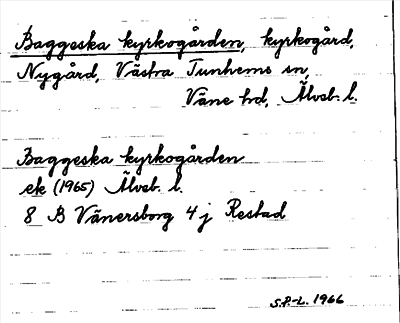 Baggeska kyrkogården, kyrkogård,
Nygård, Västra Tunhems sn,
Väne hd, Älvsb. l.
Baggeska kyrkogården
ek (1965) Älvsb. l.
8 B Vänersborg 4 j Restad
S.P-L. 1966